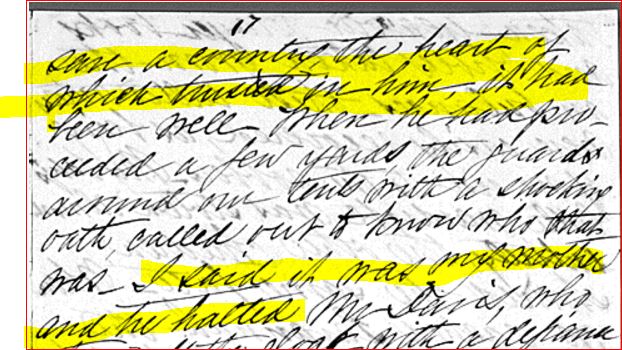 17
save a country, the heart of
which trusted in him, it had
been well. When he had pro-
ceeded a few yards, the guards
around our tents with a shocking
oath, called out to know who that
was. I said it was my mother
and he halted Mr Davis, who
cloak with a defiance